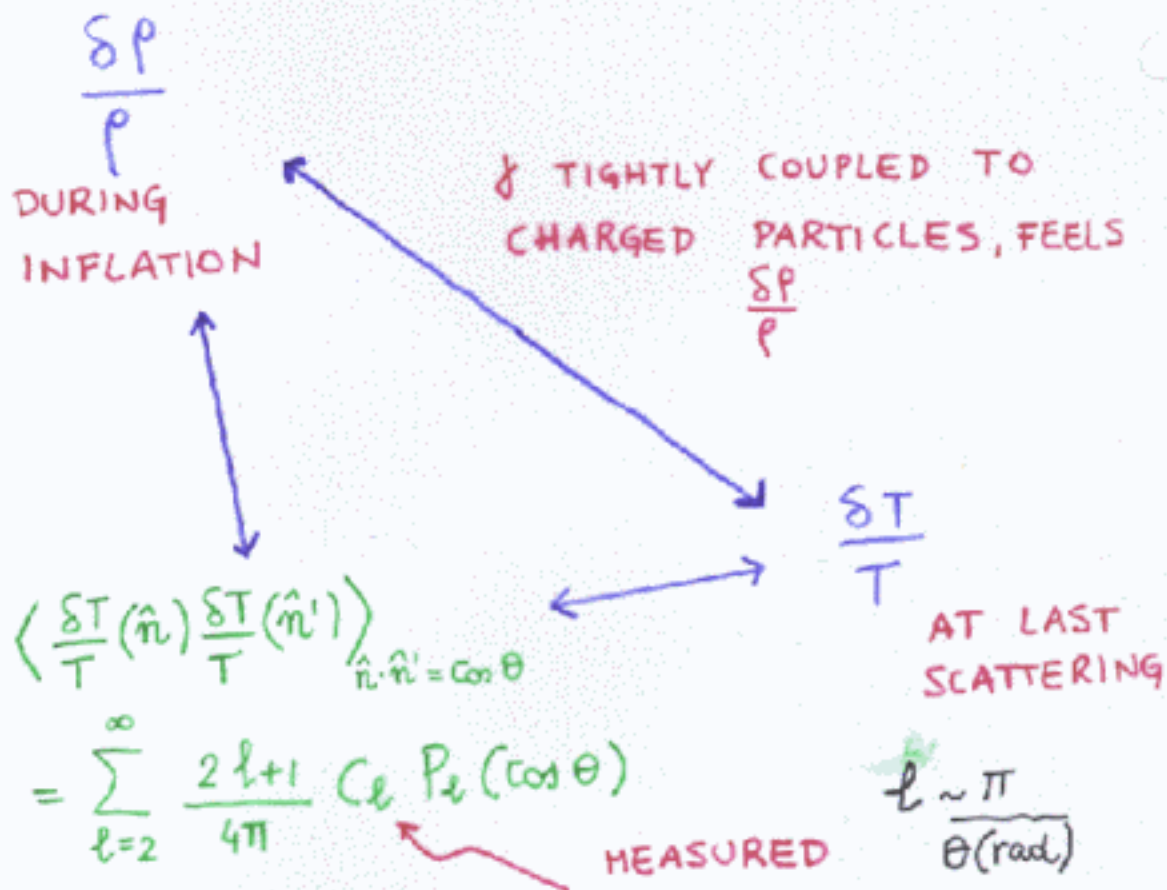 δρ/ρ
DURING
INFLATION
γ TIGHTLY COUPLED TO
CHARGED PARTICLES, FEELS
δρ/ρ
δT/T
AT LAST
SCATTERING
⟨δT/T(n̂) δT/T(n̂')⟩ n̂·n̂' = cos θ
= ∑_{ℓ=2}^{∞} (2ℓ+1)/4π C_ℓ P_ℓ(cos θ)
MEASURED
ℓ ~ π/θ(rad)